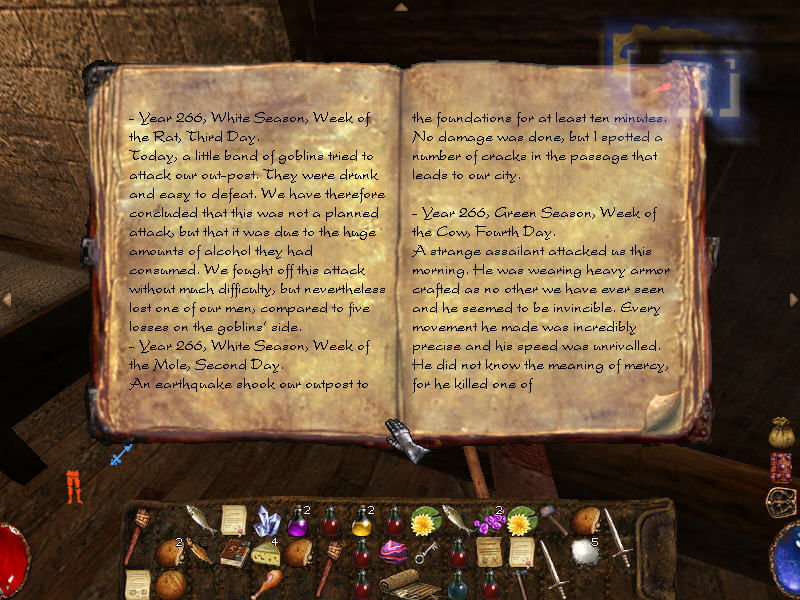 - Year 266, White Season, Week of
the Rat, Third Day.
Today, a little band of goblins tried to
attack our out-post. They were drunk
and easy to defeat. We have therefore
concluded that this was not a planned
attack, but that it was due to the huge
amounts of alcohol they had
consumed. We fought off this attack
without much difficulty, but nevertheless
lost one of our men, compared to five
losses on the goblins' side.
- Year 266, White Season, Week of
the Mole, Second Day.
An earthquake shook our outpost to
the foundations for at least ten minutes.
No damage was done, but I spotted a
number of cracks in the passage that
leads to our city.
- Year 266, Green Season, Week of
the Cow, Fourth Day.
A strange assailant attacked us this
morning. He was wearing heavy armor
crafted as no other we have ever seen
and he seemed to be invincible. Every
movement he made was incredibly
precise and his speed was unrivalled.
He did not know the meaning of mercy,
for he killed one of
2 2 2
2 4 5